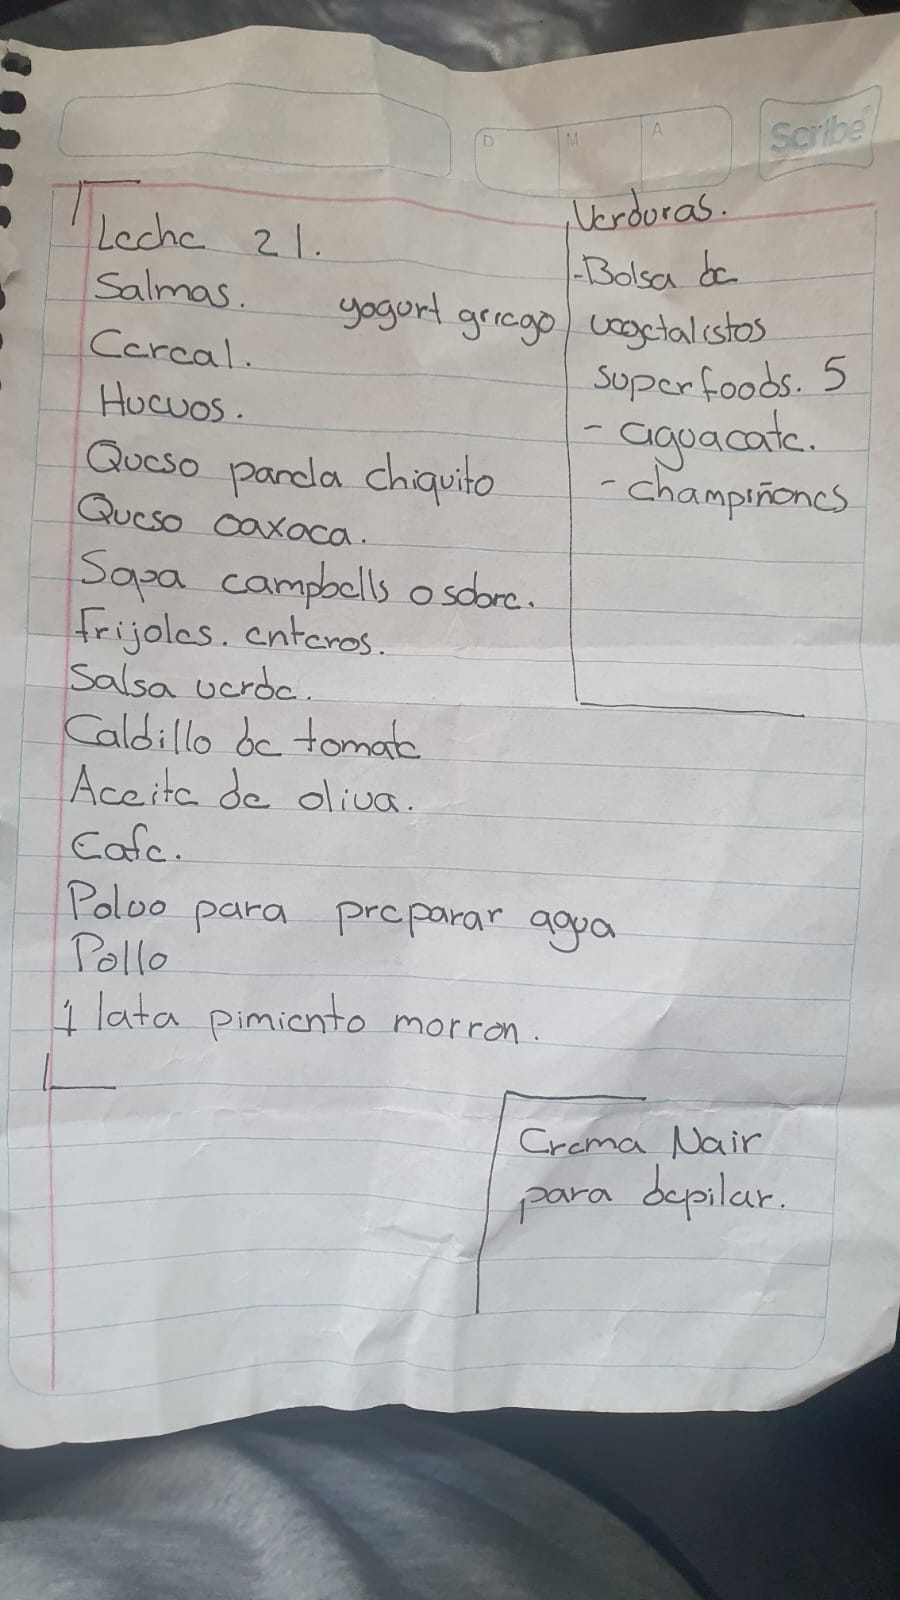 Scribe
D M A
Leche 2 l.
Salmas.
yogurt griego
Cereal.
Huevos.
Queso panela chiquito
Queso oaxaca.
Sopa campbells o sobre.
frijoles. enteros.
Salsa verde.
Caldillo de tomate
Aceite de oliva.
Cafe.
Polvo para preparar agua
Pollo
1 lata pimiento morron.
Verduras.
- Bolsa de
vegetalistos
superfoods. 5
- aguacate.
- champiñones
Crema Nair
para depilar.